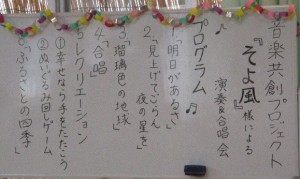 音楽共創プロジェクト
『そよ風』様による
演奏&合唱会
プログラム♫
1、明日があるさ♪
2、「見上げてごらん
夜の星を」
3、「瑠璃色の地球」
4、「合唱」
5、レクリエーション
①幸せなら手をたたこう
②ぬいぐるみ回しゲーム
6、「ふるさとの四季」